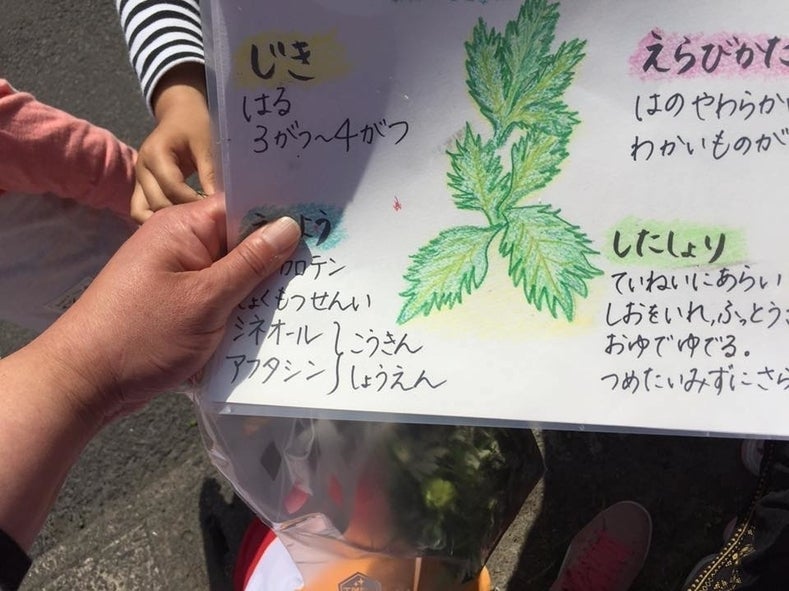 じき
はる
3がつ〜4がつ
よう
カロテン
しょくもつせんい
シネオール
アフタシン
こうきん
しょうえん
えらびかた
はのやわらか
わかいものが
したしょり
ていねいにあらい
しおをいれ,ふっとう
おゆでゆでる。
つめたいみずにさら